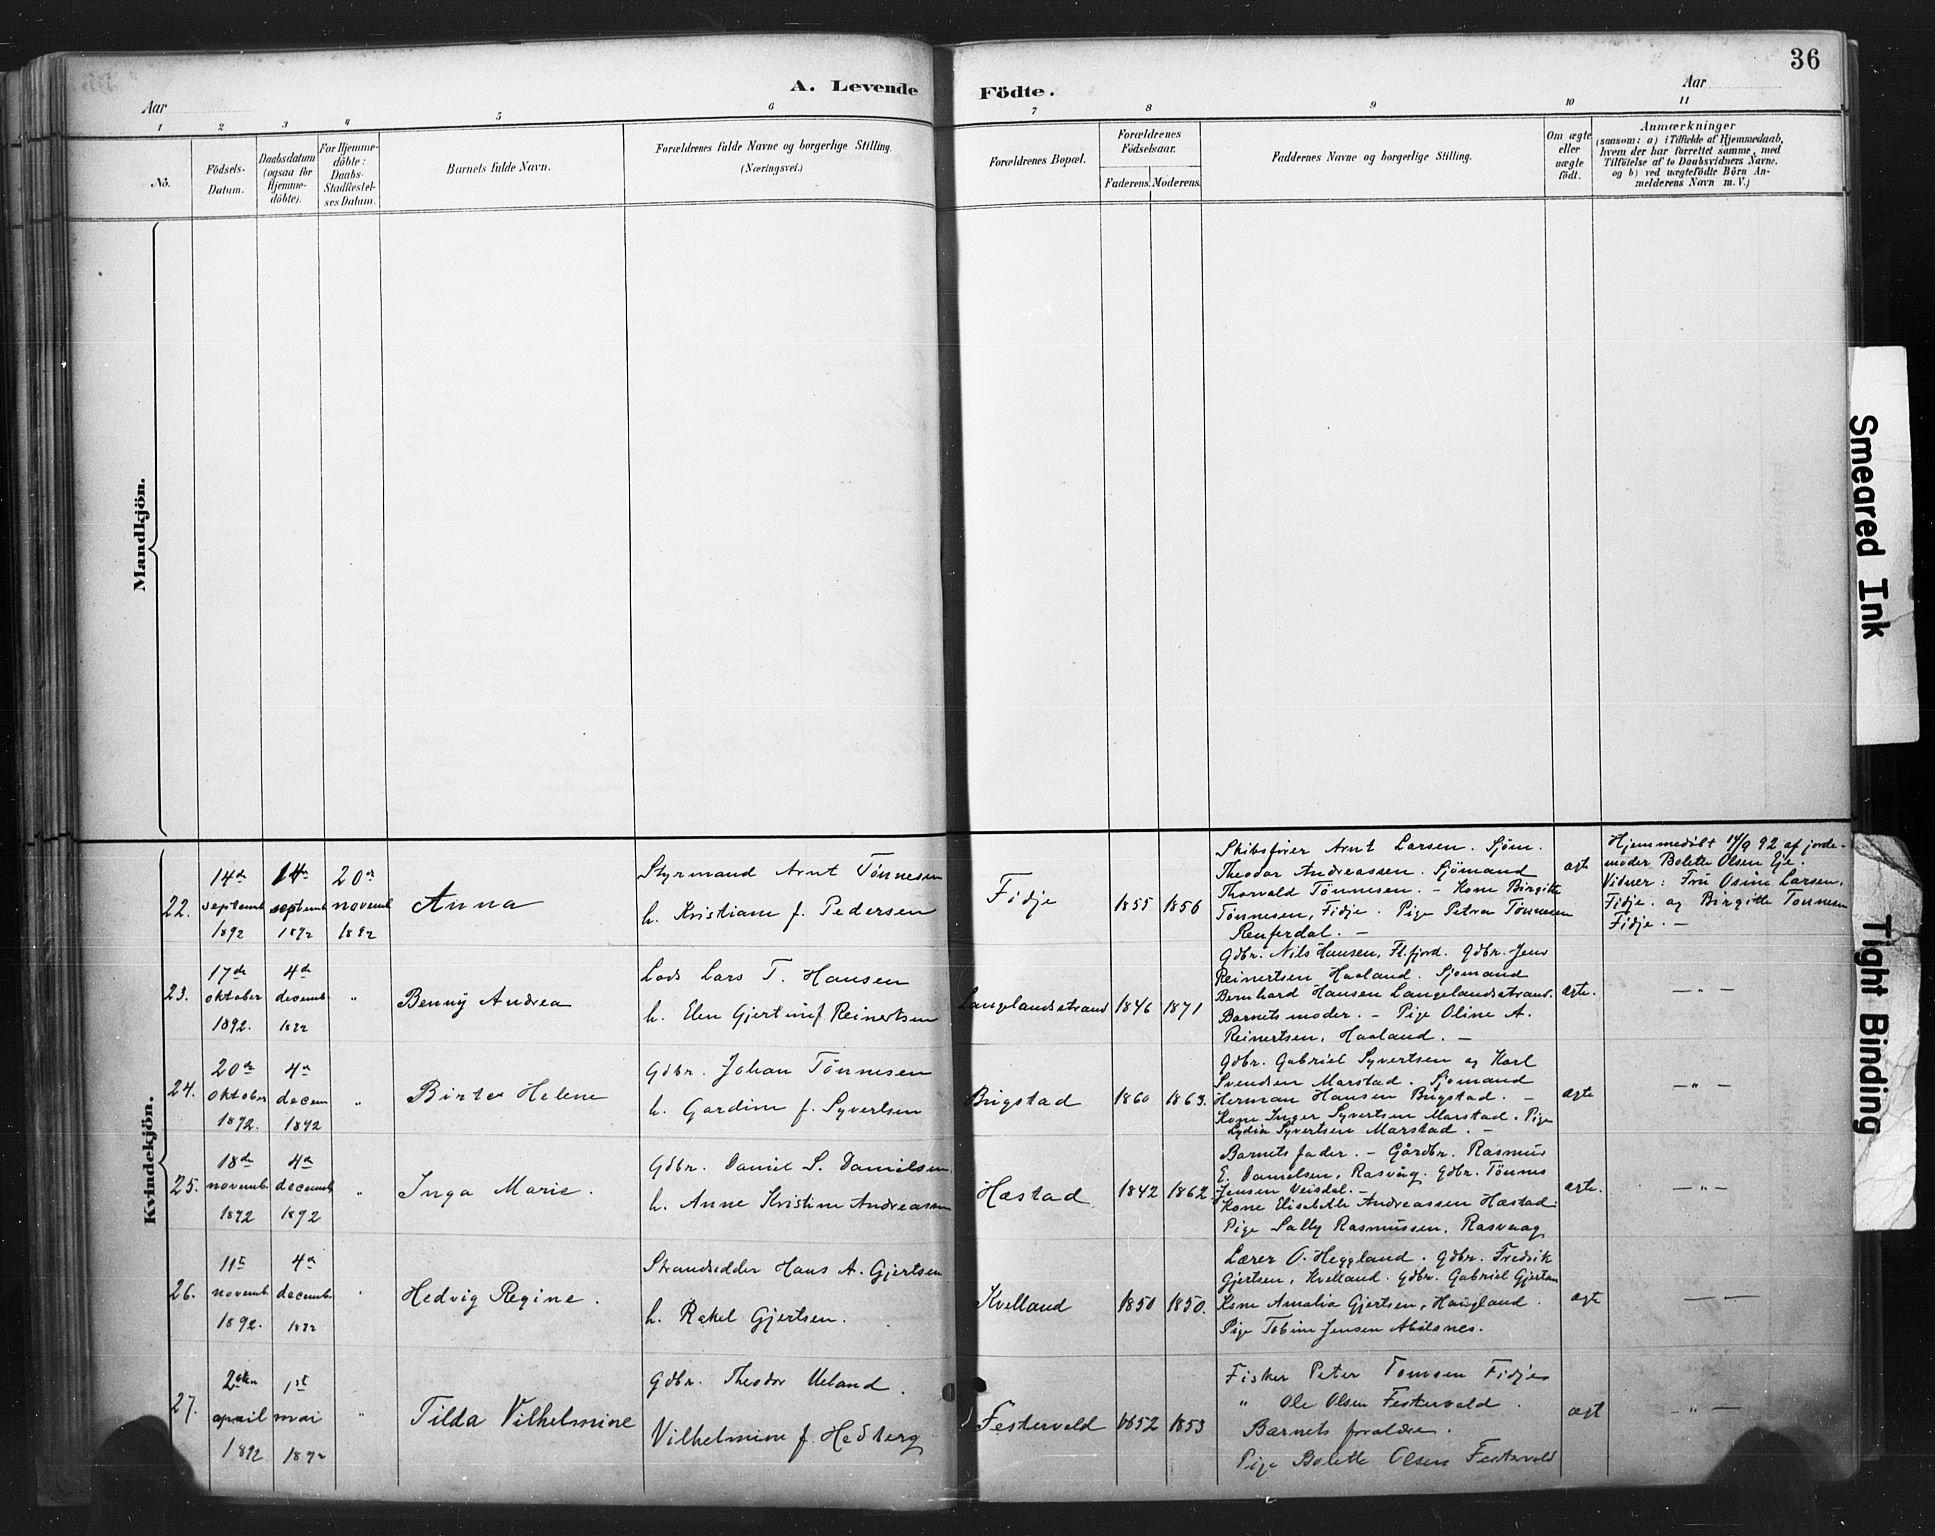 36
A. Levende Födte.
Aar
Aar
1 2 3 4 5 6 7 8 9 10 11
Nö.
Födsels-
Datum.
Daabsdatum
(ogsaa for
Hjemme-
döbte).
For Hjemme-
döbte:
Daabs-
Stadfæstel-
ses Datum.
Barnets fulde Navn.
Forældrenes fulde Navne og borgerlige Stilling.
(Næringsvei.)
Forældrenes Bopæl.
Forældrenes
Födselsaar.
Faderens. Moderens.
Faddernes Navne og borgerlige Stilling.
Om ægte
eller
uægte
födt.
Anmærkninger
(saasom: a) i Tilfælde af Hjemmedaab,
hvem der har forrettet samme, med
Tilföielse af to Daabsvidners Navne.
og b) ved uægtefödte Börn An-
melderens Navn m. V.)
Mandkjön.
Kvindekjön.
22.
14de
septemb.
1892
14de
septemb.
1892
20de
novemb.
1892
Anna
Styrmand Arnt Tönnesen
h. Kristiane f. Pedersen
Fidje
1855
1856
Skibsfører Arnt Larsen. Sjöm.
Theodor Andreassen. Sjömand
Thorvald Tönnesen. – Kone Birgitte
Tönnesen, Fidje. Pige Petra Tönnesen
Renferdal. –
ægte
Hjemmedöbt 14/9 92 af jorde-
moder Bolette Olsen Eje.
Vidner: Fru Osine Larsen,
Fidje. og Birgitte Tönnesen
Fidje. –
23.
17de
oktober
1892.
4de
decemb.
1892
"
Benny Andrea
Lods Lars T. Hansen
h. Elen Gjertine f Reinertsen
Langelandsstrand
1846
1871
Gdbr. Nils Hansen, Fl.fjord. Gdbr. Jens
Reinertsen Haaland. Sjömand
Bernhard Hansen Langelandsstrand.
Barnets moder. – Pige Oline A.
Reinertsen, Haaland. –
ægte.
– " –
24.
20de
oktober
1892.
4de
decem
1892
"
Birte Helene
Gdbr. Johan Tönnesen
h. Gardine f. Syvertsen
Brigstad
1860
1863.
Gdbr. Gabriel Syvertsen og Karl
Svendsen Marstad. Sjömand
Herman Hansen Brigstad. –
Kone Inger Syvertsen Marstad. Pige
Lydia Syvertsen Marstad. –
ægte
– " –
25.
18de
novemb.
1892
4de
decemb.
1892
"
Inga Marie.
Gdbr. Daniel S. Danielsen
h. Anne Kristine Andreassen
Hæstad
1842
1862.
Barnets fader. – Gårdbr. Rasmus
E. Danielsen, Rasvåg. Gdbr. Tönnes
Jensen Veisdal. –
Kone Elisabeth Andreassen Hæstad
Pige Sally Rasmussen, Rasvaag
ægte.
– " –
26.
11te
novemb.
1892.
4de
decemb.
1892
"
Hedvig Regine.
Strandsidder Hans A. Gjertsen
h. Rakel Gjertsen.
Kvelland
1850
1850.
Lærer O. Heggland. Gdbr. Fredrik
Gjertsen, Kvelland. Gdbr. Gabriel Gjertsen
Kone Amalia Gjertsen, Haugland.
Pige Tobine Jensen Abelsnes.
ægte
– " –
27.
2den
april
1892
1st
mai
1892
"
Tilda Vilhelmine
Gdbr. Theodor Ueland.
Vilhelmine f. Hedberg
Festervold
1852
1853
Fisker Peter Tomsen Fidje
" Ole Olsen Festervold.
Barnets forældre.
Pige Bolette Olsen Festervold
ægt
– " –
Smeared Ink
Tight Binding